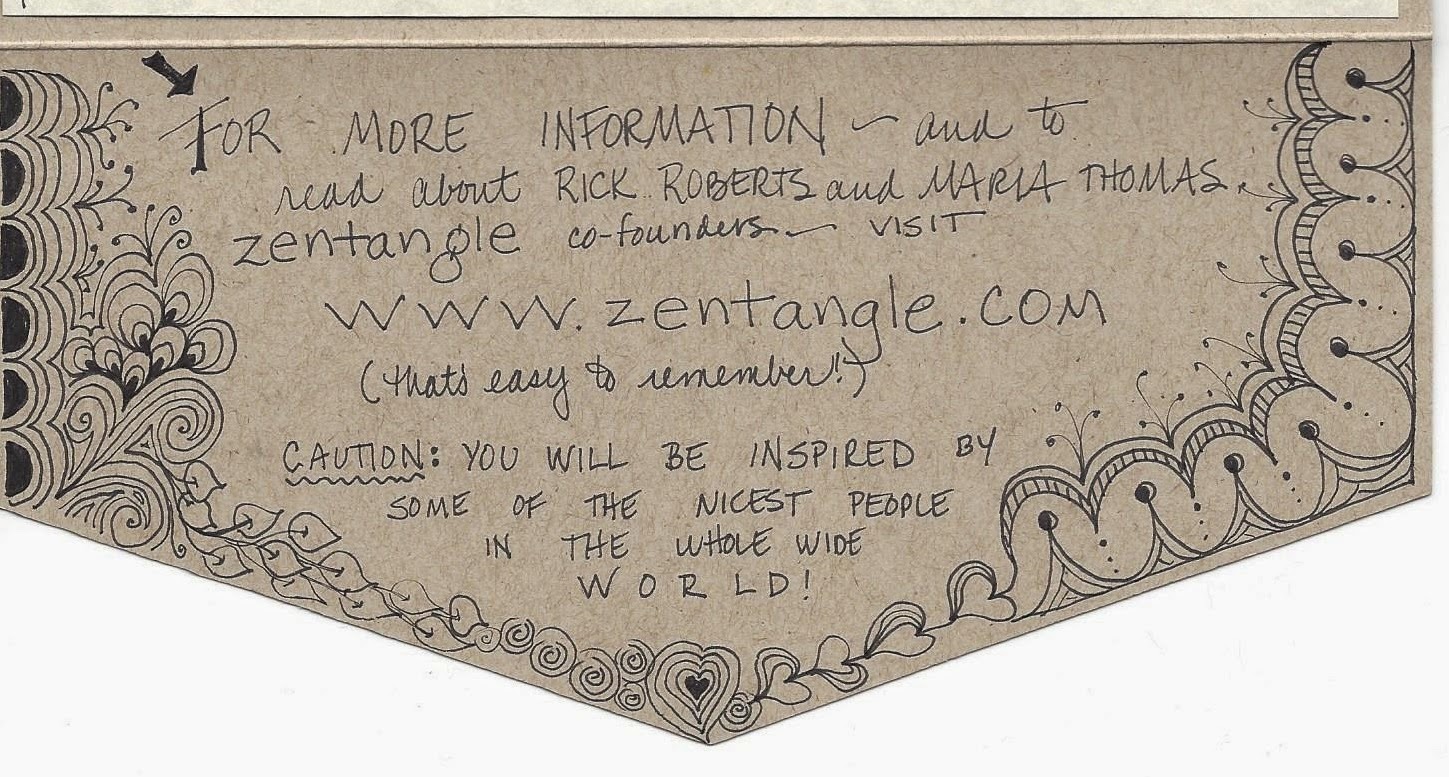 FOR MORE INFORMATION ~ and to
read about RICK ROBERTS and MARIA THOMAS,
zentangle co-founders ~ VISIT
www.zentangle.com
(that's easy to remember!)
CAUTION: YOU WILL BE INSPIRED BY
SOME OF THE NICEST PEOPLE
IN THE WHOLE WIDE
WORLD!